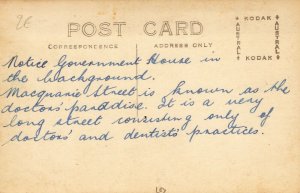 2E
POST CARD
CORRESPONDENCE
ADDRESS ONLY
KODAK
AUSTRAL
AUSTRAL
KODAK
Notice Government House in
the background.
Macquarie Street is known as the
doctors' paradise. It is a very
long street consisting only of
doctors' and dentists' practices.